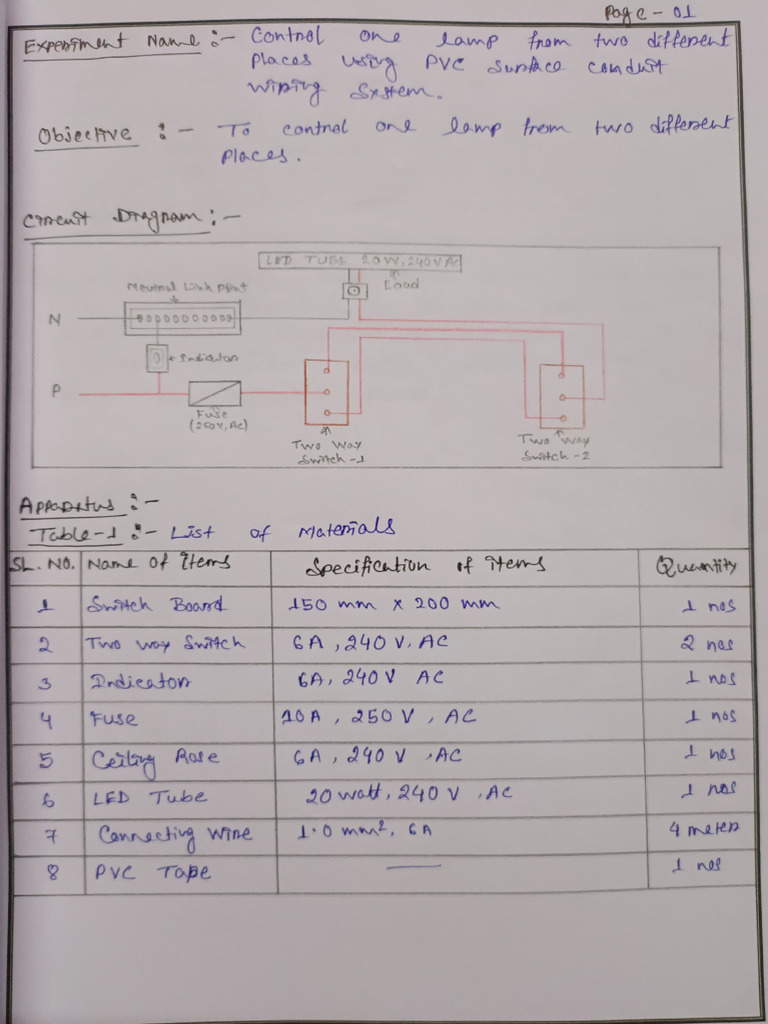 Page - 01
Experiment Name :- Control one lamp from two different
places using PVC surface conduit
wiring system.
Objective :- To control one lamp from two different
places.
Circuit Diagram :-
LED TUBE 20W, 240V AC
Neutral Link point
Load
N
Indicator
P
Fuse
(250V, AC)
Two Way
Switch -1
Two Way
Switch -2
Apparatus :-
Table-1 :- List of Materials
SL. NO. Name of items Specification of items Quantity
1 Switch Board 150 mm x 200 mm 1 nos
2 Two way Switch 6A, 240 V, AC 2 nos
3 Indicator 6A, 240 V AC 1 nos
4 Fuse 10A, 250 V, AC 1 nos
5 Ceiling Rose 6A, 240 V, AC 1 nos
6 LED Tube 20 watt, 240 V, AC 1 nos
7 Connecting Wire 1.0 mm², 6A 4 meter
8 PVC Tape — 1 nos